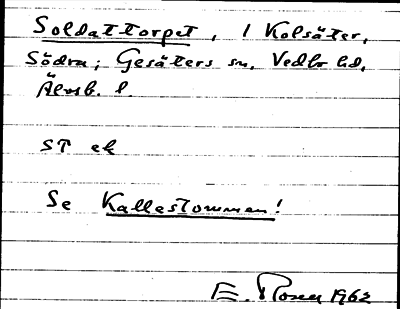 Soldattorpet, 1 Kolsäter,
Södra; Gesäters sn, Vedbo hd,
Älvsb. l.
ST ek
Se Kallestomman!
E. Rosen 1962